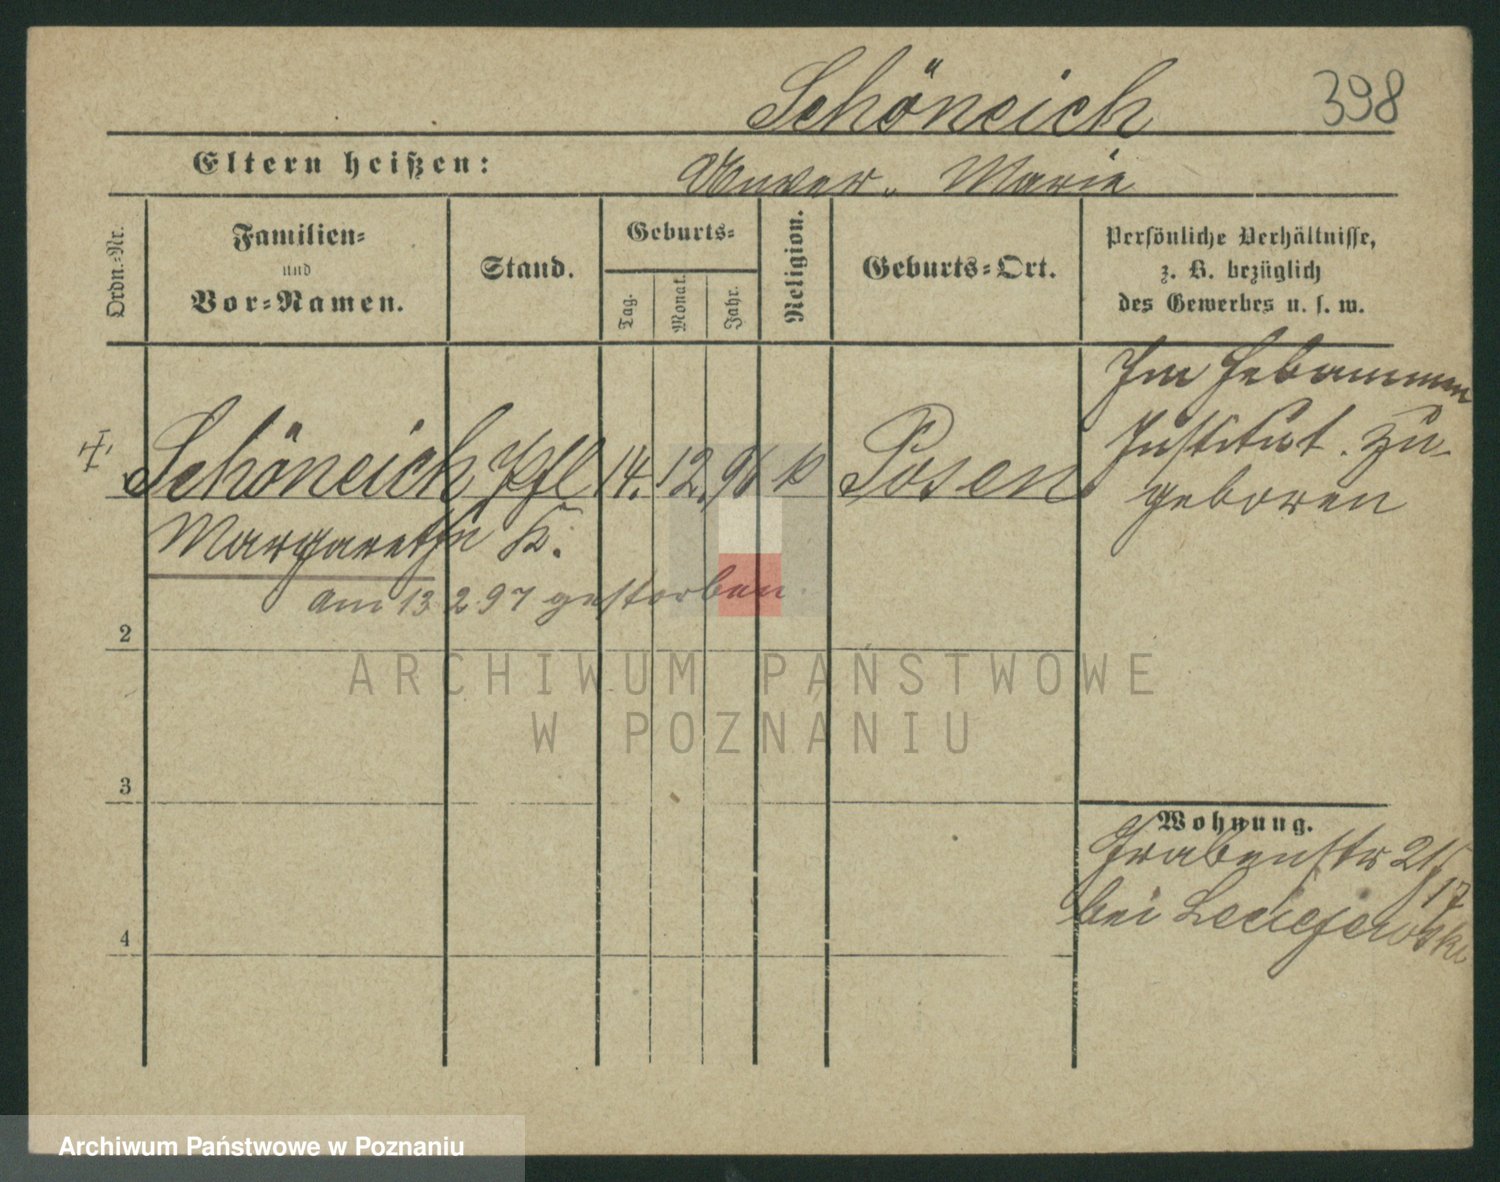 Schöneich 398
Eltern heißen: Unver. Marie
Ordn.-Nr.
Familien-
und
Vor-Namen.
Stand.
Geburts-
Tag.
Monat.
Jahr.
Religion.
Geburts-Ort.
Persönliche Verhältnisse,
z. B. bezüglich
des Gewerbes u. s. w.
Im Hebammen
Institut. zu-
geboren
Schöneich Pfl 14. 12. 96 k Posen
Margarethe K.
am 13 2 97 gestorben.
2
3
4
Wohnung.
Grabenstr 25
17
bei
ARCHIWUM PAŃSTWOWE
W POZNANIU
Archiwum Państwowe w Poznaniu